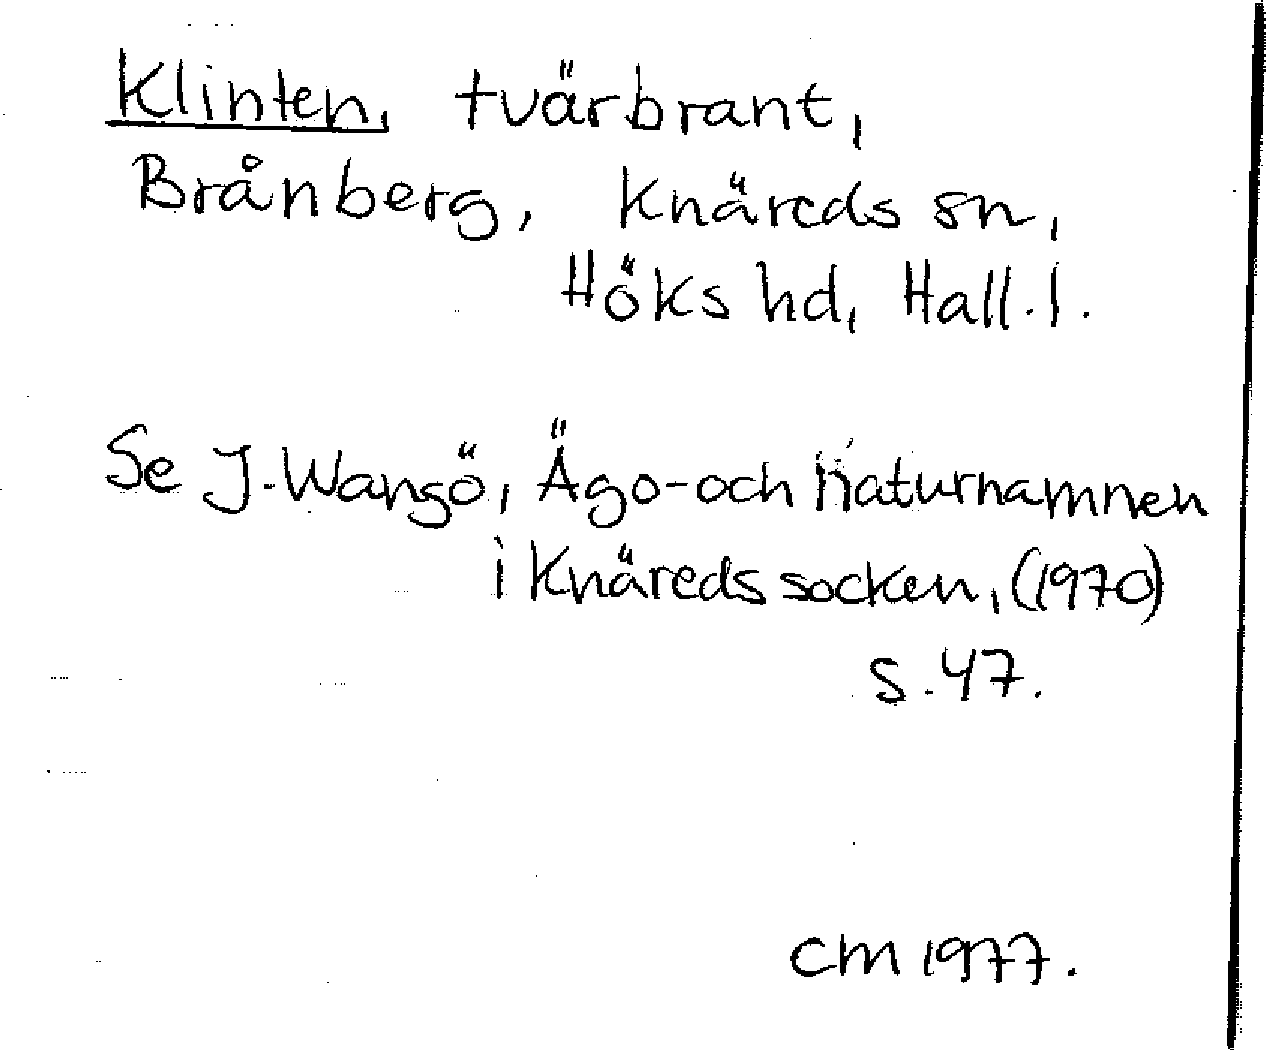 Klinten, tvärbrant,
Brånberg, Knäreds sn,
Höks hd, Hall. l.
Se J. Wangö, Ägo- och naturnamnen
i Knäreds socken, (1970)
s. 47.
CM 1977.